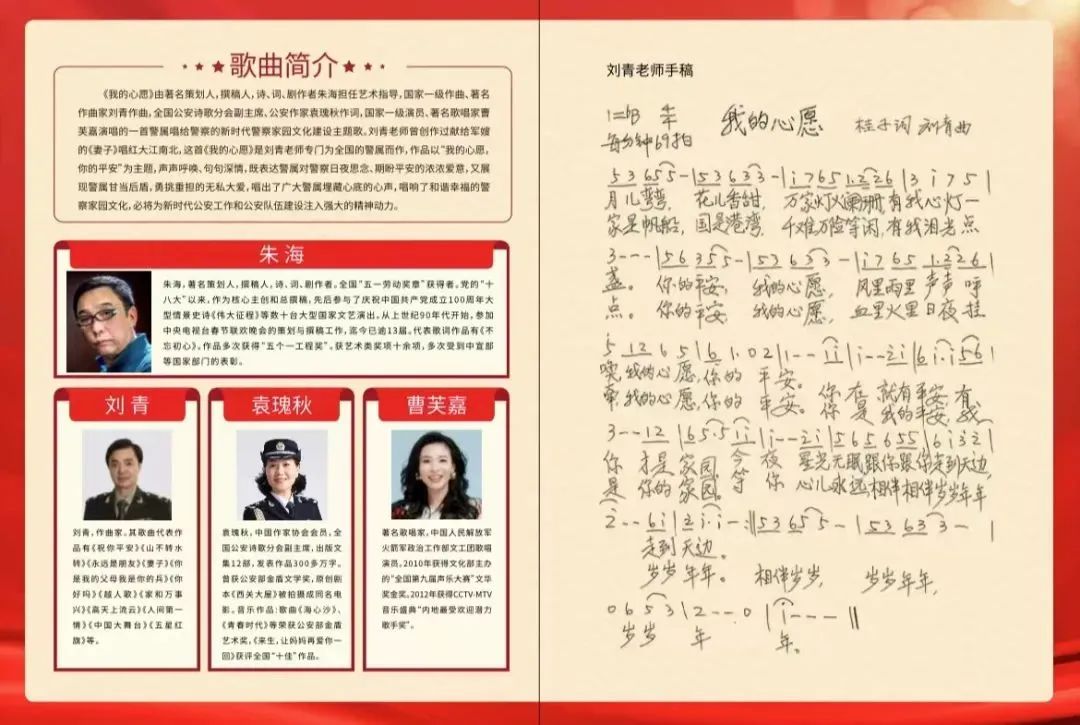 歌曲简介
《我的心愿》由著名策划人,撰稿人,诗、词、剧作者朱海担任艺术指导,国家一级作曲、著名
作曲家刘青作曲,全国公安诗歌分会副主席、公安作家袁瑰秋作词,国家一级演员、著名歌唱家曹
芙嘉演唱的一首警属唱给警察的新时代警察家园文化建设主题歌。刘青老师曾创作过献给军嫂
的《妻子》唱红大江南北,这首《我的心愿》是刘青老师专门为全国的警属而作,作品以“我的心愿,
你的平安”为主题,声声呼唤、句句深情,既表达警属对警察日夜思念、期盼平安的浓浓爱意,又展
现警属甘当后盾,勇挑重担的无私大爱,唱出了广大警属埋藏心底的心声,唱响了和谐幸福的警
察家园文化,必将为新时代公安工作和公安队伍建设注入强大的精神动力。
朱海
朱海,著名策划人,撰稿人,诗、词、剧作者,全国“五一劳动奖章”获得者。党的“十
八大”以来,作为核心主创和总撰稿,先后参与了庆祝中国共产党成立100周年大
型情景史诗《伟大征程》等数十台大型国家文艺演出。从上世纪90年代开始,参加
中央电视台春节联欢晚会的策划与撰稿工作,迄今已逾13届。代表歌词作品有《不
忘初心》。作品多次获得“五个一工程奖”。获艺术类奖项十余项,多次受到中宣部
等国家部门的表彰。
刘青
刘青,作曲家。其歌曲代表作
品有《祝你平安》《山不转水
转》《永远是朋友》《妻子》《你
是我的父母我是你的兵》《你
好吗》《越人歌》《家和万事
兴》《高天上流云》《人间第一
情》《中国大舞台》《五星红
旗》等。
袁瑰秋
袁瑰秋,中国作家协会会员,全
国公安诗歌分会副主席,出版文
集12部,发表作品300多万字。
曾获公安部金盾文学奖,原创剧
本《西关大屋》被拍摄成同名电
影。音乐作品:歌曲《海心沙》、
《青春时代》等荣获公安部金盾
艺术奖,《来生,让妈再爱你一
回》获评全国“十佳”作品。
曹芙嘉
著名歌唱家,中国人民解放军
火箭军政治工作部文工团歌唱
演员。2010年获得文化部主办
的“全国第九届声乐大赛”文华
奖金奖。2012年获得CCTV-MTV
音乐盛典“内地最受欢迎潜力
歌手奖”。
刘青老师手稿
1=bB 我的心愿 桂子词 刘青曲
每分钟69拍
5 3 6 5 5 - | 5 3 6 3 3 - | i 7 6 5 1.2 2 6 | 3 i 7 5 |
月儿弯弯, 花儿香甜, 万家灯火阑珊,有我心灯一
家是帆船,国是港湾, 千难万险等闲,有我泪光点
3 - - - | 5 6 3 5 5 - | 5 3 6 3 3 - | i 7 6 5 1.2 2 6 |
盏。 你的平安, 我的心愿, 风里雨里声声呼
点。 你的平安, 我的心愿, 血里火里日夜挂
5 1 2 6 5 | 6 1. 0 2 | 1 - - i i | i - - 2 i | 6 i. i 5 6 |
唤,我的心愿,你的 平安。 你在 就有平安,有
牵,我的心愿,你的 平安。 你是 我的平安,我
3 - - 1 2 | 6 5. 5 i i | i - - 2 i | 5 6 5 6 5 5 | 6 i 3 2 |
你 才是家园 今夜 星光无眠跟你跟你走到天边
是 你的家园。等你 心儿永远相伴相伴岁岁年年
2 - - 6 i | 2 i. i - :‖ 5 3 6 5 5 - | 5 3 6 3 3 - |
走到天边。
岁岁年年。 相伴岁岁, 岁岁年年,
0 6 5 3 | 2 - - 0 | i - - - ‖
岁岁 年 年。